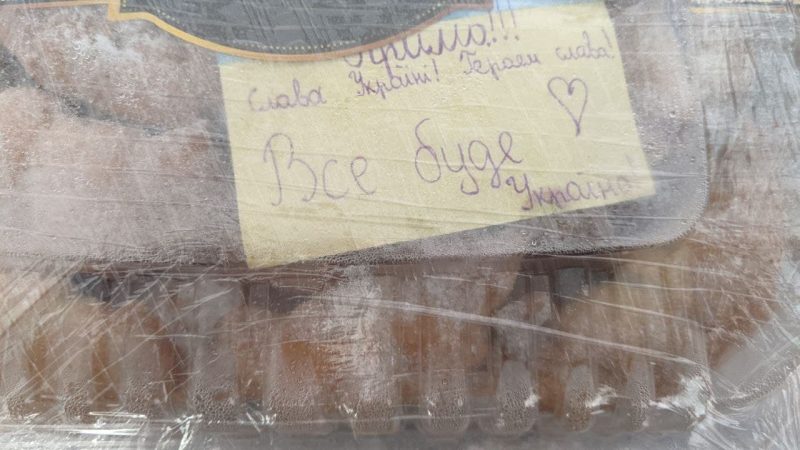 Слава Україні! Героям слава!
Все буде
Україна!